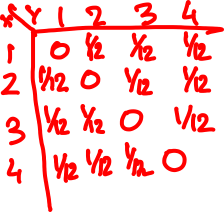 x Y 1 2 3 4
1 0 1/12 1/12 1/12
2 1/12 0 1/12 1/12
3 1/12 1/12 0 1/12
4 1/12 1/12 1/12 0